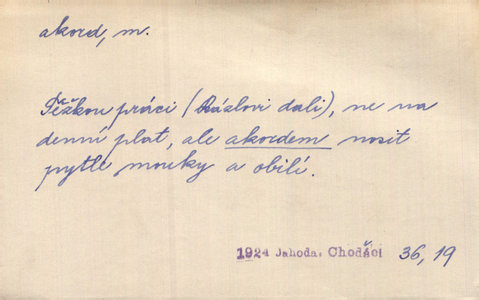 akord, m.
Těžkou práci (Rázlovi dali), ne na
denní plat, ale akordem nosit
pytle mouky a obilí.
1924 Jahoda, Chodáci 36, 19